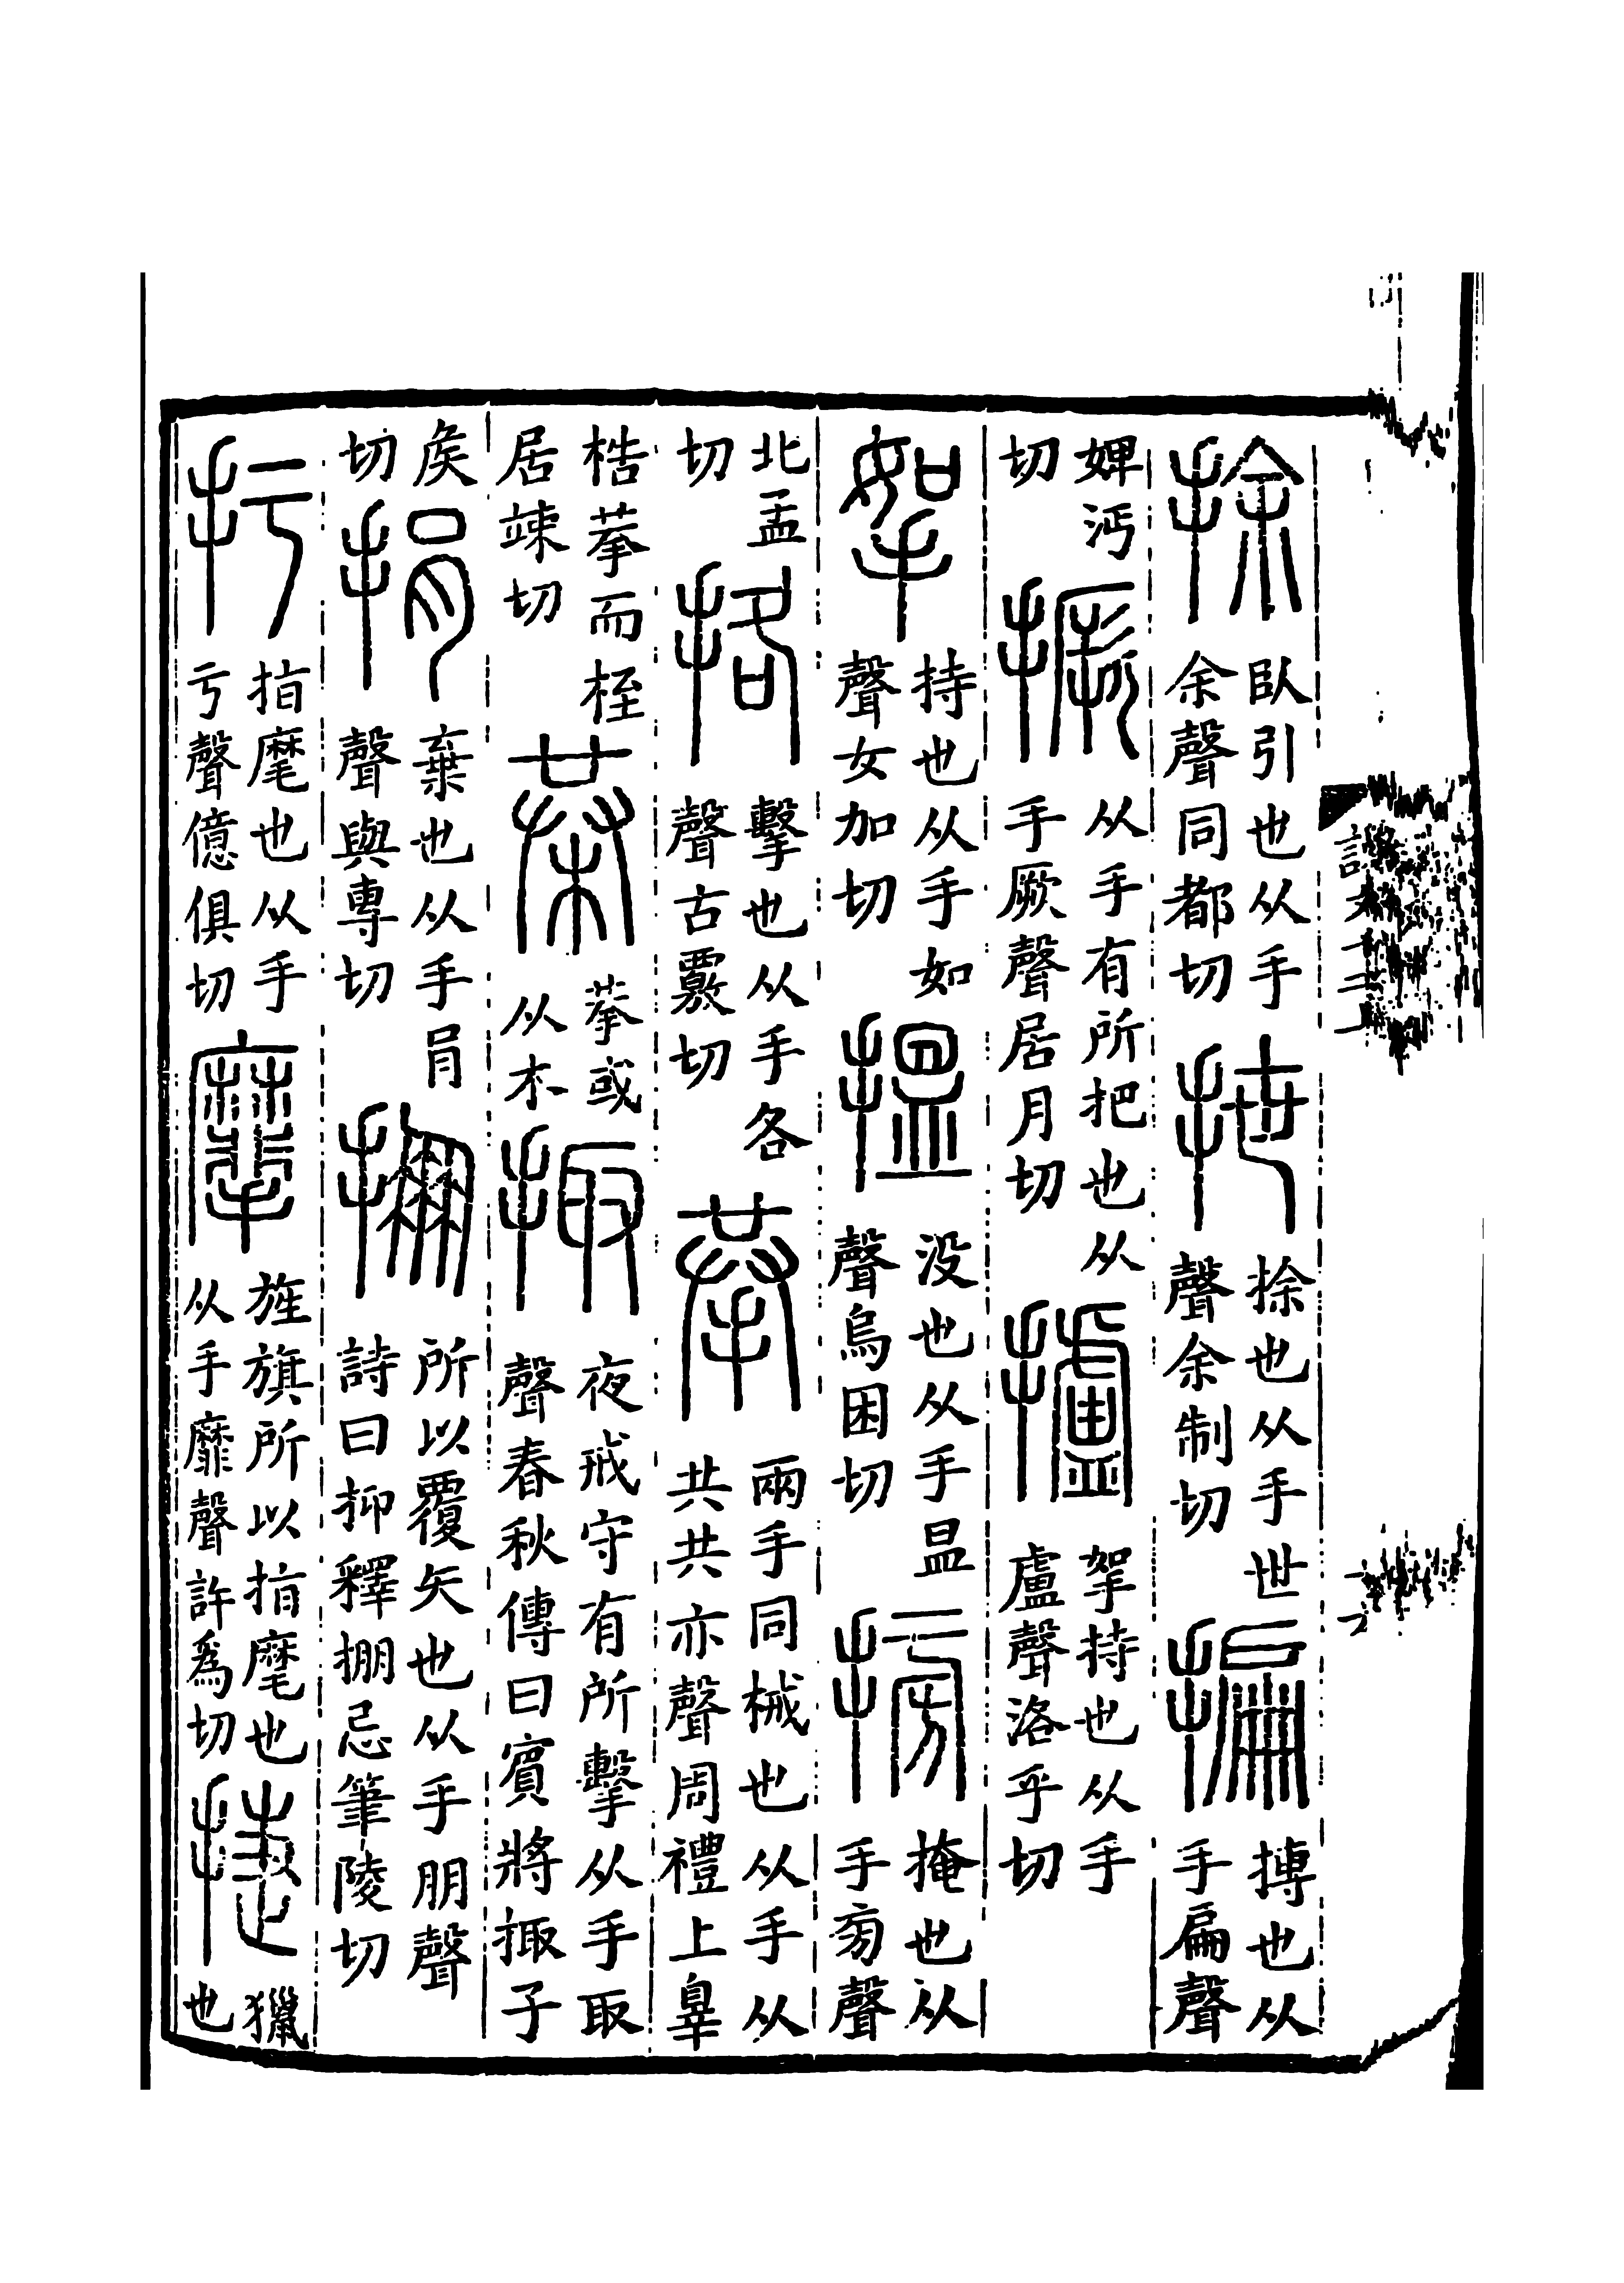 捈臥引也从手余聲同都切抴捈也从手世聲余制切揙搏也从手扁聲
婢沔切撅从手有所把也从手厥聲居月切攎挐持也从手盧聲洛乎切
挐持也从手如聲女加切搵没也从手昷聲烏困切搒掩也从手㫄聲
北孟切挌擊也从手各聲古覈切拲兩手同械也从手从共共亦聲周禮上辠
梏拲而桎居竦切𣐧拲或从木掫夜戒守有所擊从手取聲春秋傳曰賓將掫子
矦切捐棄也从手肙聲與專切掤所以覆矢也从手朋聲詩曰抑釋掤忌筆陵切
扜指麾也从手亏聲億俱切𢳀旌旗所以指麾也从手靡聲許爲切捷獵也